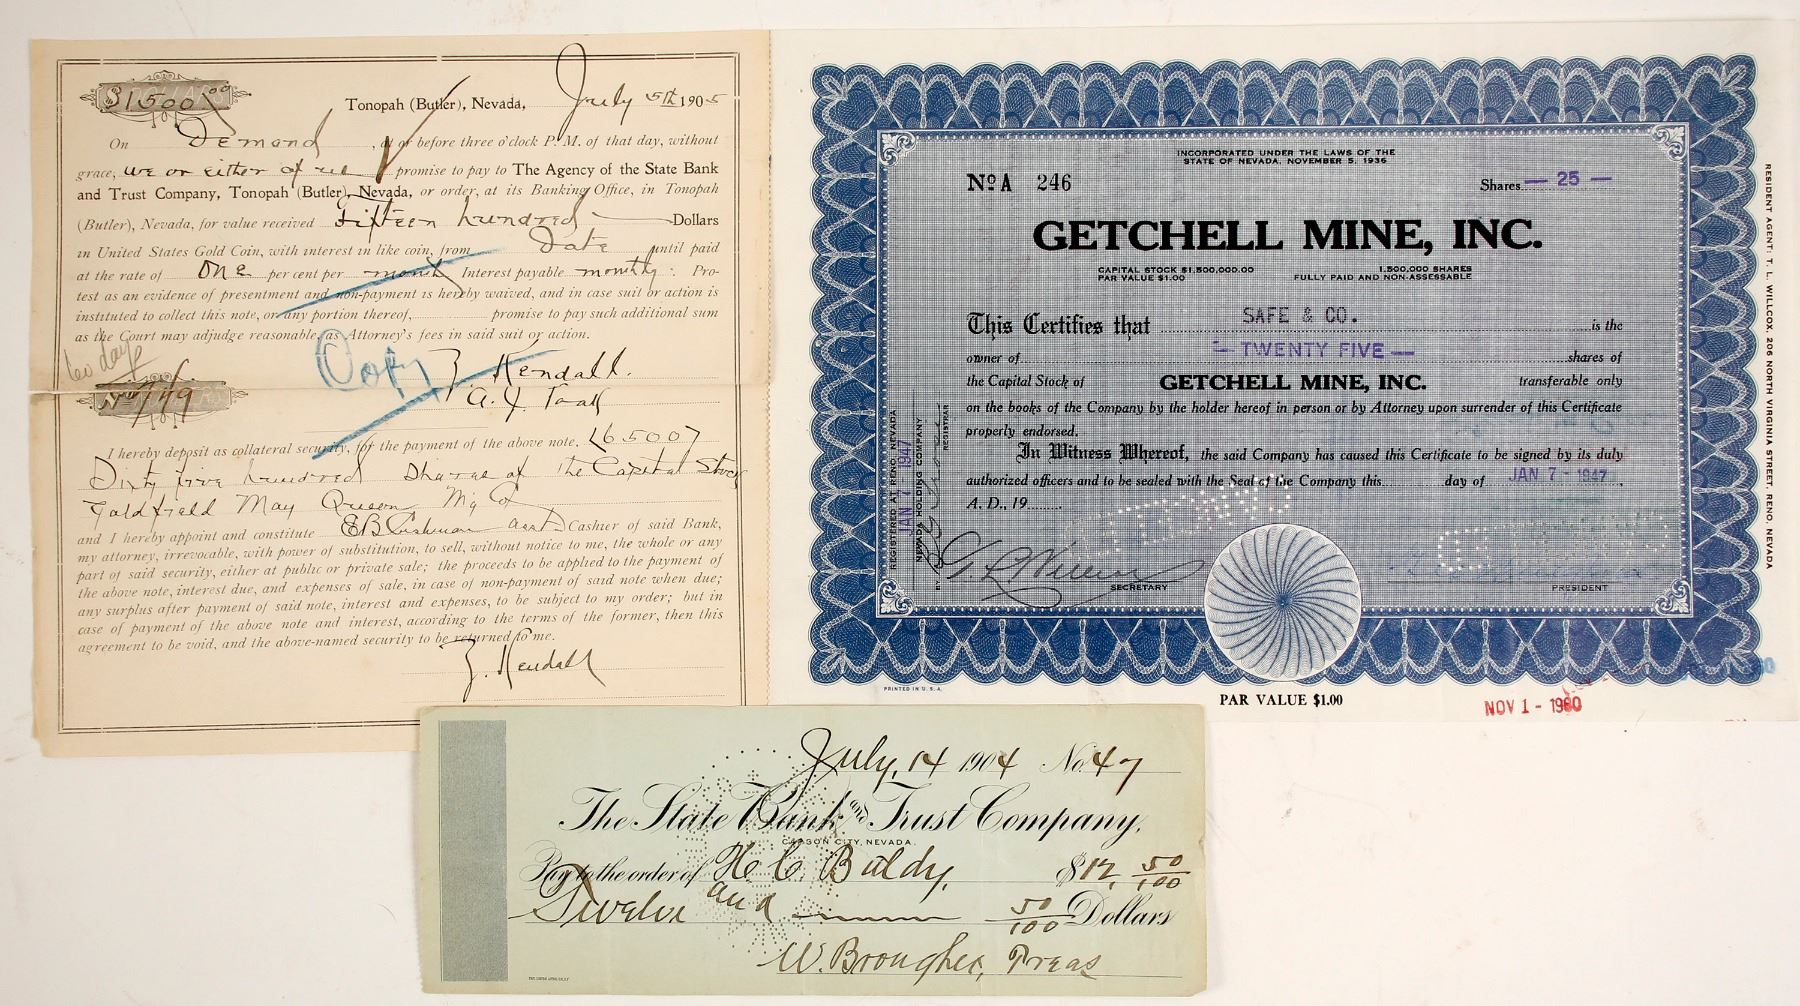 $1500 00
DOLLARS
Tonopah (Butler), Nevada, July 5th 1905
On Demand, at or before three o'clock P. M. of that day, without
grace, we or either of us promise to pay to The Agency of the State Bank
and Trust Company, Tonopah (Butler), Nevada, or order, at its Banking Office, in Tonopah
(Butler), Nevada, for value received Fifteen hundred Dollars
in United States Gold Coin, with interest in like coin, from Date until paid
at the rate of one per cent per month Interest payable monthly: Pro-
test as an evidence of presentment and non-payment is hereby waived, and in case suit or action is
instituted to collect this note, or any portion thereof, promise to pay such additional sum
as the Court may adjudge reasonable, as Attorney's fees in said suit or action.
60 days
Copy
Z. Kendall.
A. J.
I hereby deposit as collateral security, for the payment of the above note, (6500)
Sixty five hundred Shares of the Capital Stock
Goldfield May Queen Mg Co
and I hereby appoint and constitute E B Cushman agent Cashier of said Bank,
my attorney, irrevocable, with power of substitution, to sell, without notice to me, the whole or any
part of said security, either at public or private sale; the proceeds to be applied to the payment of
the above note, interest due, and expenses of sale, in case of non-payment of said note when due;
any surplus after payment of said note, interest and expenses, to be subject to my order; but in
case of payment of the above note and interest, according to the terms of the former, then this
agreement to be void, and the above-named security to be returned to me.
Z. Kendall
INCORPORATED UNDER THE LAWS OF THE
STATE OF NEVADA, NOVEMBER 5, 1936
No A 246
Shares — 25 —
GETCHELL MINE, INC.
CAPITAL STOCK $1,500,000.00
PAR VALUE $1.00
1,500,000 SHARES
FULLY PAID AND NON-ASSESSABLE
This Certifies that SAFE & CO. is the
owner of — TWENTY FIVE — shares of
the Capital Stock of GETCHELL MINE, INC. transferable only
on the books of the Company by the holder hereof in person or by Attorney upon surrender of this Certificate
properly endorsed.
In Witness Whereof, the said Company has caused this Certificate to be signed by its duly
authorized officers and to be sealed with the Seal of the Company this day of JAN 7 - 1947
A. D., 19
CANCELLED
SECRETARY
PRESIDENT
REGISTERED AT RENO, NEVADA
JAN 7 - 1947
NEVADA HOLDING COMPANY
REGISTRAR
BY
RESIDENT AGENT: T. L. WILLCOX, 206 NORTH VIRGINIA STREET, RENO, NEVADA
PRINTED IN U. S. A.
PAR VALUE $1.00
NOV 1 - 1960
July, 14 1904 No. 47
The State Bank and Trust Company,
CARSON CITY, NEVADA.
Pay to the order of H. C. Baldy, $12, 50/100
Twelve and 50/100 Dollars
W. Brougher, Treas